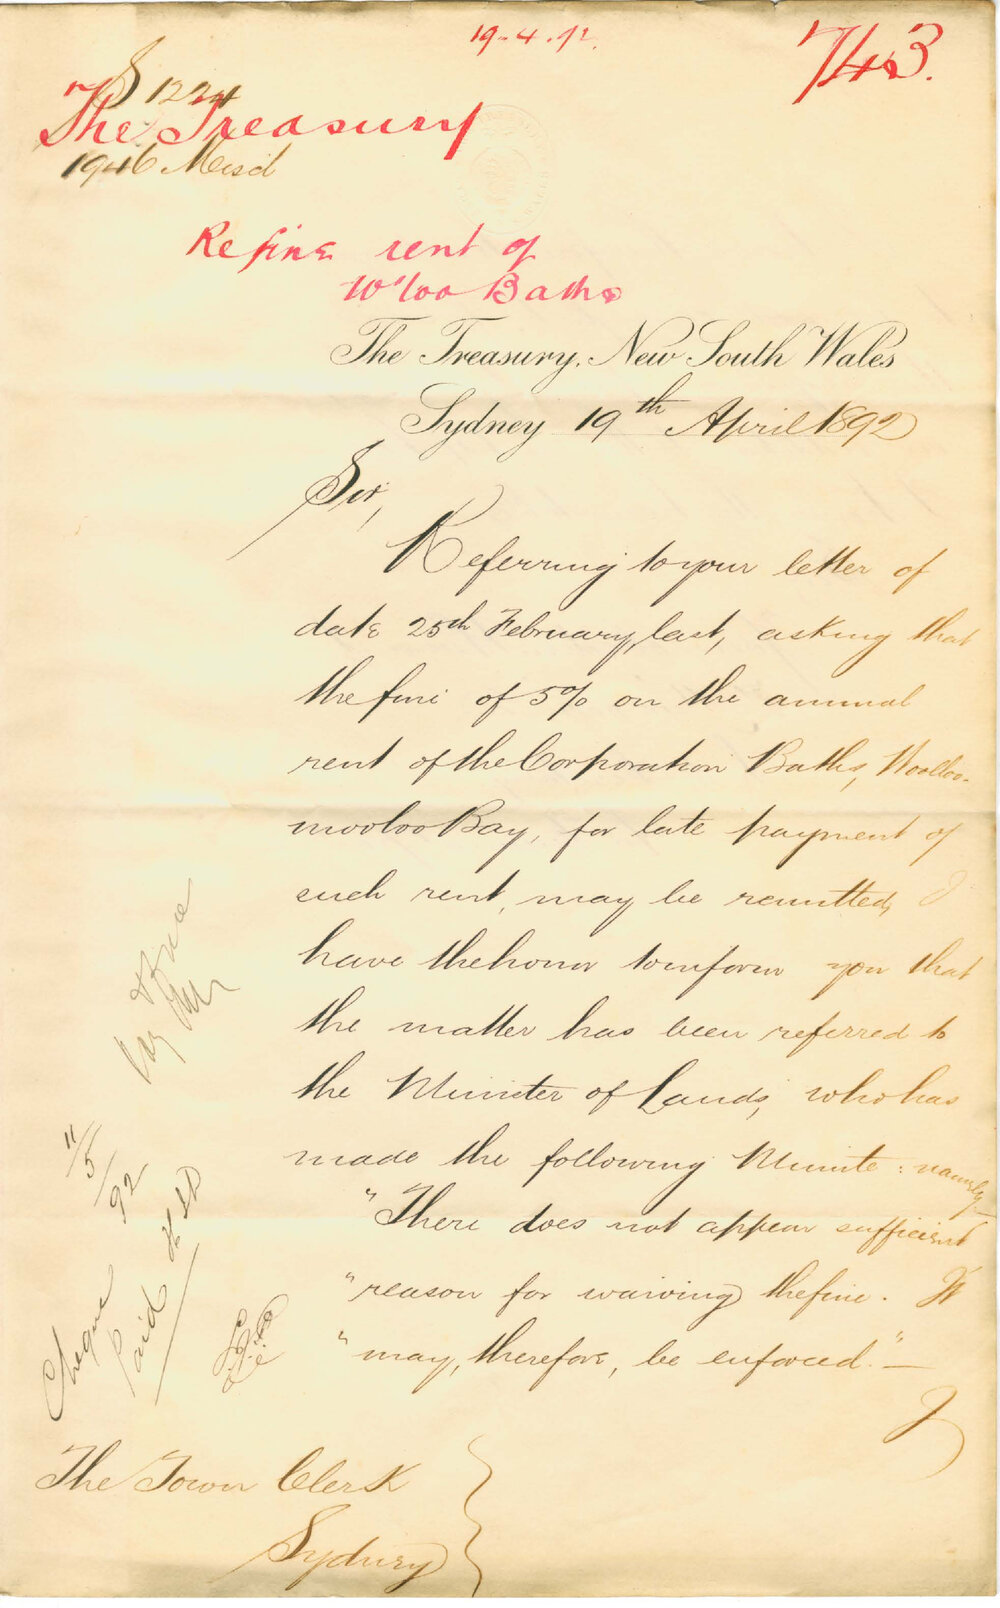 19.4.92.
743.
S 1224
The Treasury
1946 Misd
Re fine rent of
W'loo Baths
The Treasury, New South Wales
Sydney 19th April 1892
Sir,
Referring to your letter of
date 25th February, last, asking that
the fine of 5% on the annual
rent of the Corporation Baths, Woolloo-
mooloo Bay, for late payment of
such rent, may be remitted, I
have the honor to inform you that
the matter has been referred to
the Minister of Lands, who has
made the following Minute: namely—
"There does not appear sufficient
"reason for waiving the fine. It
"may, therefore, be enforced."—
I
The Town Clerk
Sydney
Cheque
Paid
11/5/92